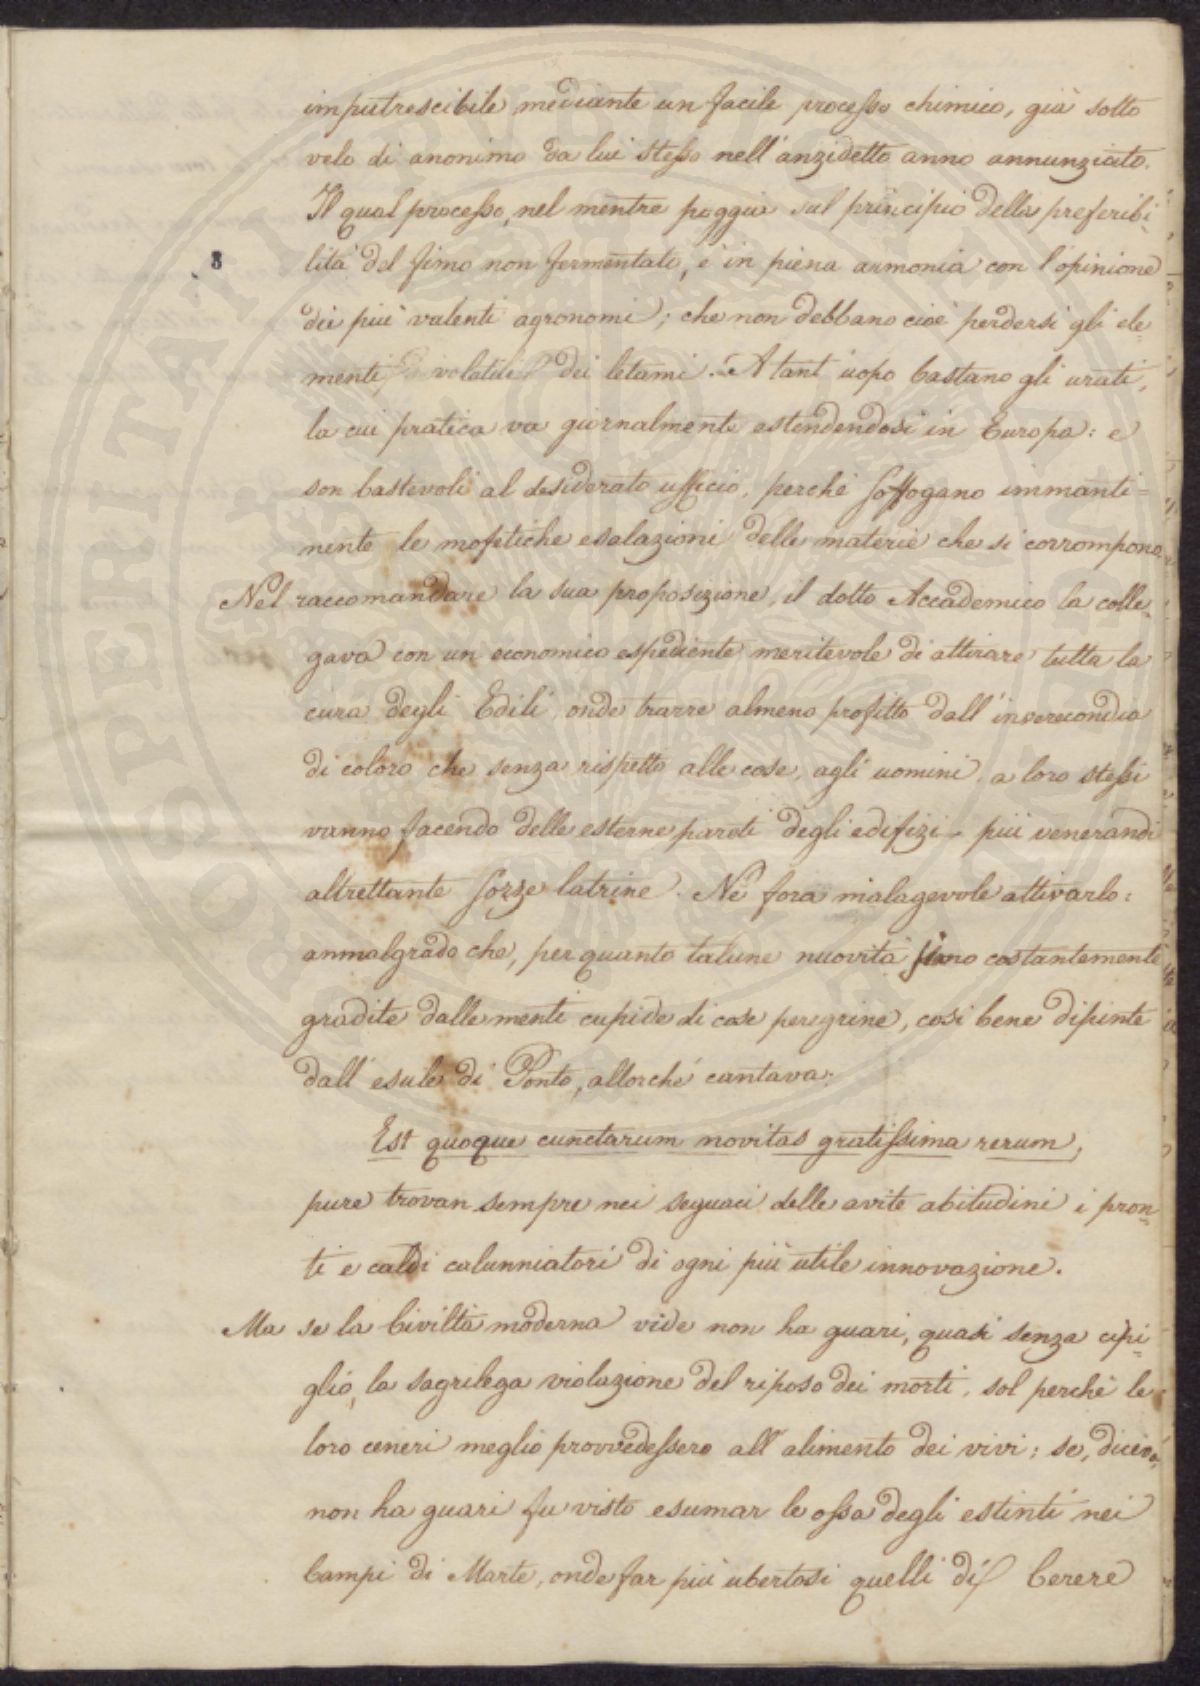 imputrescibile, mediante un facile processo chimico, già sotto
velo di anonimo da lui stesso nell'anzidetto anno annunziato.
Il qual processo, nel mentre poggia sul principio della preferibi-
8
lità del fimo non fermentati, è in piena armonia con l'opinione
dei più valenti agronomi; che non debbano cioè perdersi gli ele-
menti volatili dei letami. A tant'uopo bastano gli urati,
la cui pratica va giornalmente estendendosi in Europa: e
son bastevoli al desiderato ufficio, perchè soffogano immanti=
nente le mofetiche esalazioni delle materie che si corrompono.
Nel raccomandare la sua proposizione, il dotto Accademico la colle-
gava con un economico espediente meritevole di attirare tutta la
cura degli Edili, onde trarre almeno profitto dall'inverecondia
di coloro che senza rispetto alle cose, agli uomini, a loro stessi
vanno facendo delle esterne pareti degli edifizi più venerandi
altrettante sozze latrine. Nè fora malagevole attivarlo:
anmalgrado che, per quanto talune nuovità siano costantemente
gradite dalle menti cupide di cose peregrine, così bene dipinte
dall'esule di Ponto, allorchè cantava:
Est quoque cunctarum novitas gratissima rerum,
pure trovan sempre nei seguaci delle avite abitudini i pron-
ti e caldi calunniatori di ogni più utile innovazione.
Ma se la Civiltà moderna vide non ha guari, quasi senza cipi-
glio, la sagrilega violazione del riposo dei morti, sol perchè le
loro ceneri meglio provvedessero all'alimento dei vivi; se, diceva,
non ha guari fu visto esumar le ossa degli estinti nei
Campi di Marte, onde far più ubertosi quelli di Cerere
PROSPERITATI PUBLICAE